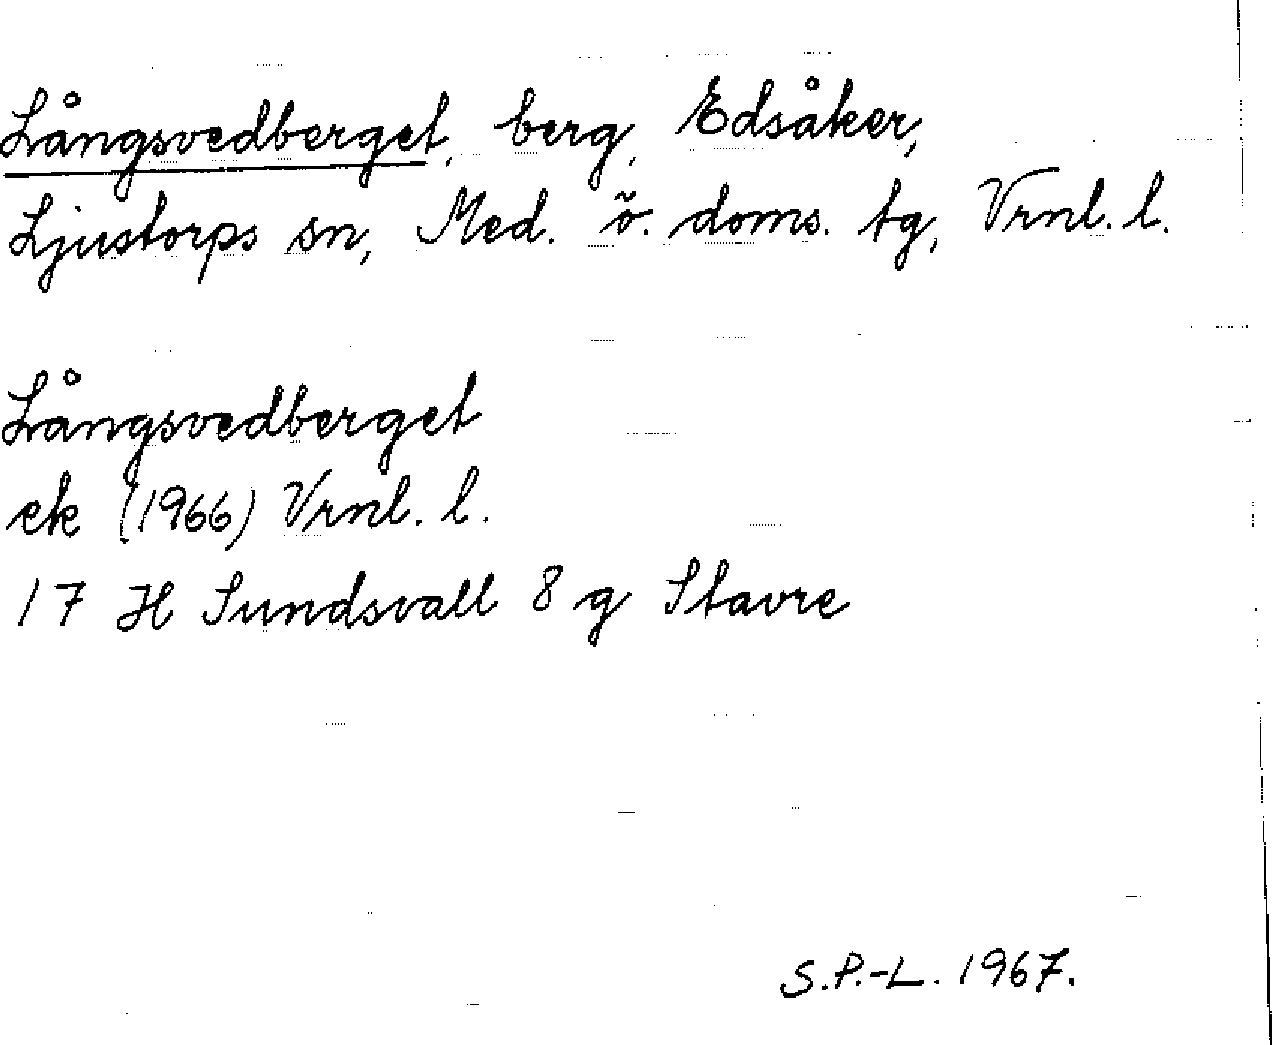 Långsvedberget, berg, Edsåker,
Ljustorps sn, Med. ö. doms. tg, Vrnl. l.
Långsvedberget
ek (1966) Vrnl. l.
17 H Sundsvall 8 g Stavre
S.P.-L. 1967.